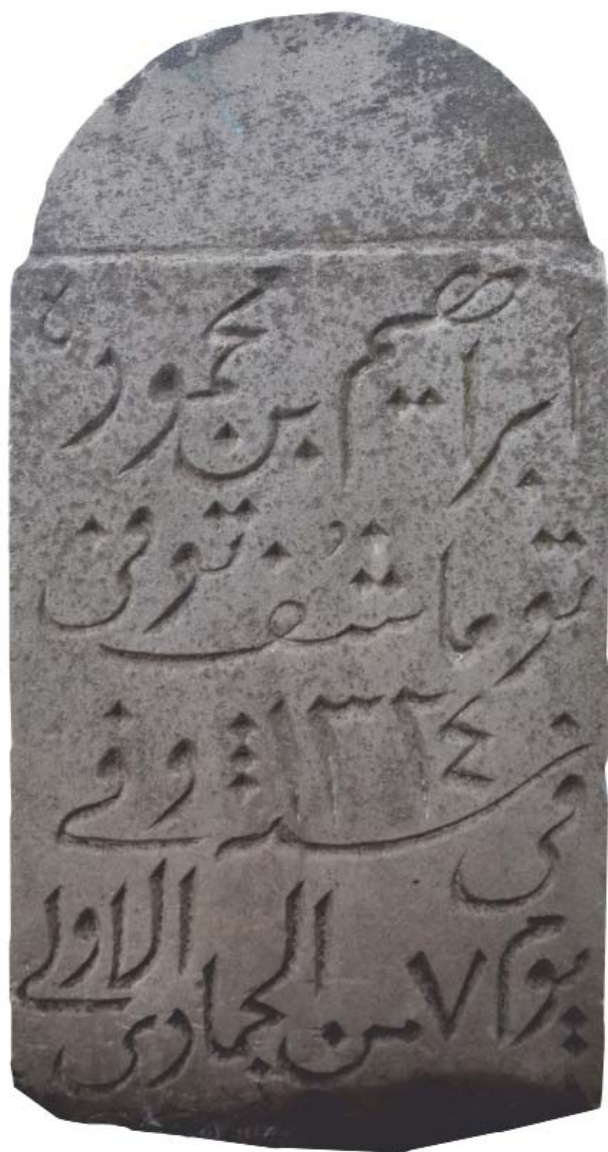 ابراهيم بن محمود
توعاشف توفى
في سنة ١٣٢٤ وفي
يوم ٧ من الجمادى الاولى